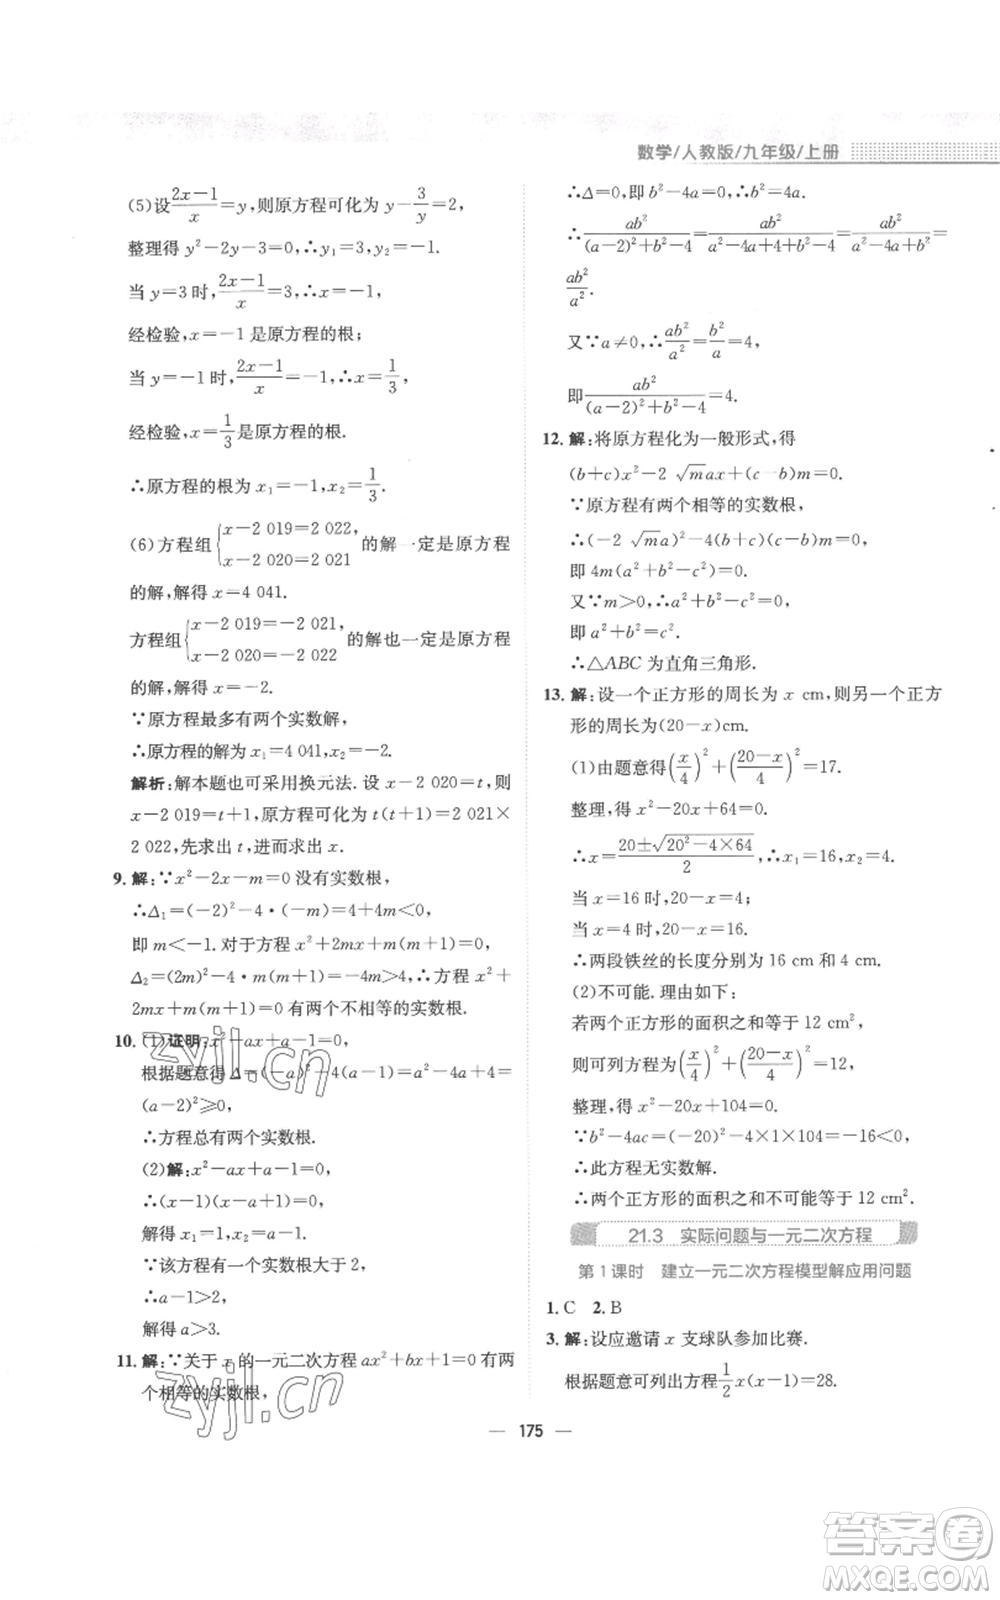 数学/人教版/九年级/上册
(5)设(2x-1)/x=y,则原方程可化为 y-3/y=2,
整理得 y²-2y-3=0,∴y₁=3,y₂=-1.
当 y=3 时,(2x-1)/x=3,∴x=-1,
经检验,x=-1 是原方程的根;
当 y=-1 时,(2x-1)/x=-1,∴x=1/3,
经检验,x=1/3 是原方程的根.
∴原方程的根为 x₁=-1,x₂=1/3.
(6)方程组{x-2 019=2 022, x-2 020=2 021 的解一定是原方程
的解,解得 x=4 041.
方程组{x-2 019=-2 021, x-2 020=-2 022 的解也一定是原方程
的解,解得 x=-2.
∵原方程最多有两个实数解,
∴原方程的解为 x₁=4 041,x₂=-2.
解析:解本题也可采用换元法. 设 x-2 020=t,则
x-2 019=t+1,原方程可化为 t(t+1)=2 021×
2 022,先求出 t,进而求出 x.
9. 解:∵x²-2x-m=0 没有实数根,
∴Δ₁=(-2)²-4·(-m)=4+4m<0,
即 m<-1. 对于方程 x²+2mx+m(m+1)=0,
Δ₂=(2m)²-4·m(m+1)=-4m>4,∴方程 x²+
2mx+m(m+1)=0 有两个不相等的实数根.
10. (1)证明:x²-ax+a-1=0,
根据题意得 Δ=(-a)²-4(a-1)=a²-4a+4=
(a-2)²≥0,
∴方程总有两个实数根.
(2)解:x²-ax+a-1=0,
∴(x-1)(x-a+1)=0,
解得 x₁=1,x₂=a-1.
∵该方程有一实数根大于 2,
∴a-1>2,
解得 a>3.
11. 解:∵关于 x 的一元二次方程 ax²+bx+1=0 有两
个相等的实数根,
∴Δ=0,即 b²-4a=0,∴b²=4a.
∴ab²/((a-2)²+b²-4)=ab²/(a²-4a+4+b²-4)=ab²/(a²-4a+b²)=
ab²/a².
又∵a≠0,∴ab²/a²=b²/a=4,
即ab²/((a-2)²+b²-4)=4.
12. 解:将原方程化为一般形式,得
(b+c)x²-2√m ax+(c-b)m=0.
∵原方程有两个相等的实数根,
∴(-2√m a)²-4(b+c)(c-b)m=0,
即 4m(a²+b²-c²)=0.
又∵m>0,∴a²+b²-c²=0,
即 a²+b²=c².
∴△ABC 为直角三角形.
13. 解:设一个正方形的周长为 x cm,则另一个正方
形的周长为(20-x)cm.
(1)由题意得(x/4)²+((20-x)/4)²=17.
整理,得 x²-20x+64=0.
∴x=(20±√(20²-4×64))/2,∴x₁=16,x₂=4.
当 x=16 时,20-x=4.
当 x=4 时,20-x=16.
∴两段铁丝的长度分别为 16 cm 和 4 cm.
(2)不可能. 理由如下:
若两个正方形的面积之和等于 12 cm²,
则可列方程为(x/4)²+((20-x)/4)²=12,
整理,得 x²-20x+104=0.
∵b²-4ac=(-20)²-4×1×104=-16<0,
∴此方程无实数解.
∴两个正方形的面积之和不可能等于 12 cm².
21.3 实际问题与一元二次方程
第 1 课时 建立一元二次方程模型解应用问题
1. C 2. B
3. 解:设应邀请 x 支球队参加比赛.
根据题意可列出方程1/2x(x-1)=28.
— 175 —
zyjl.cn
zyjl.cn
答案圈
MXQE.COM